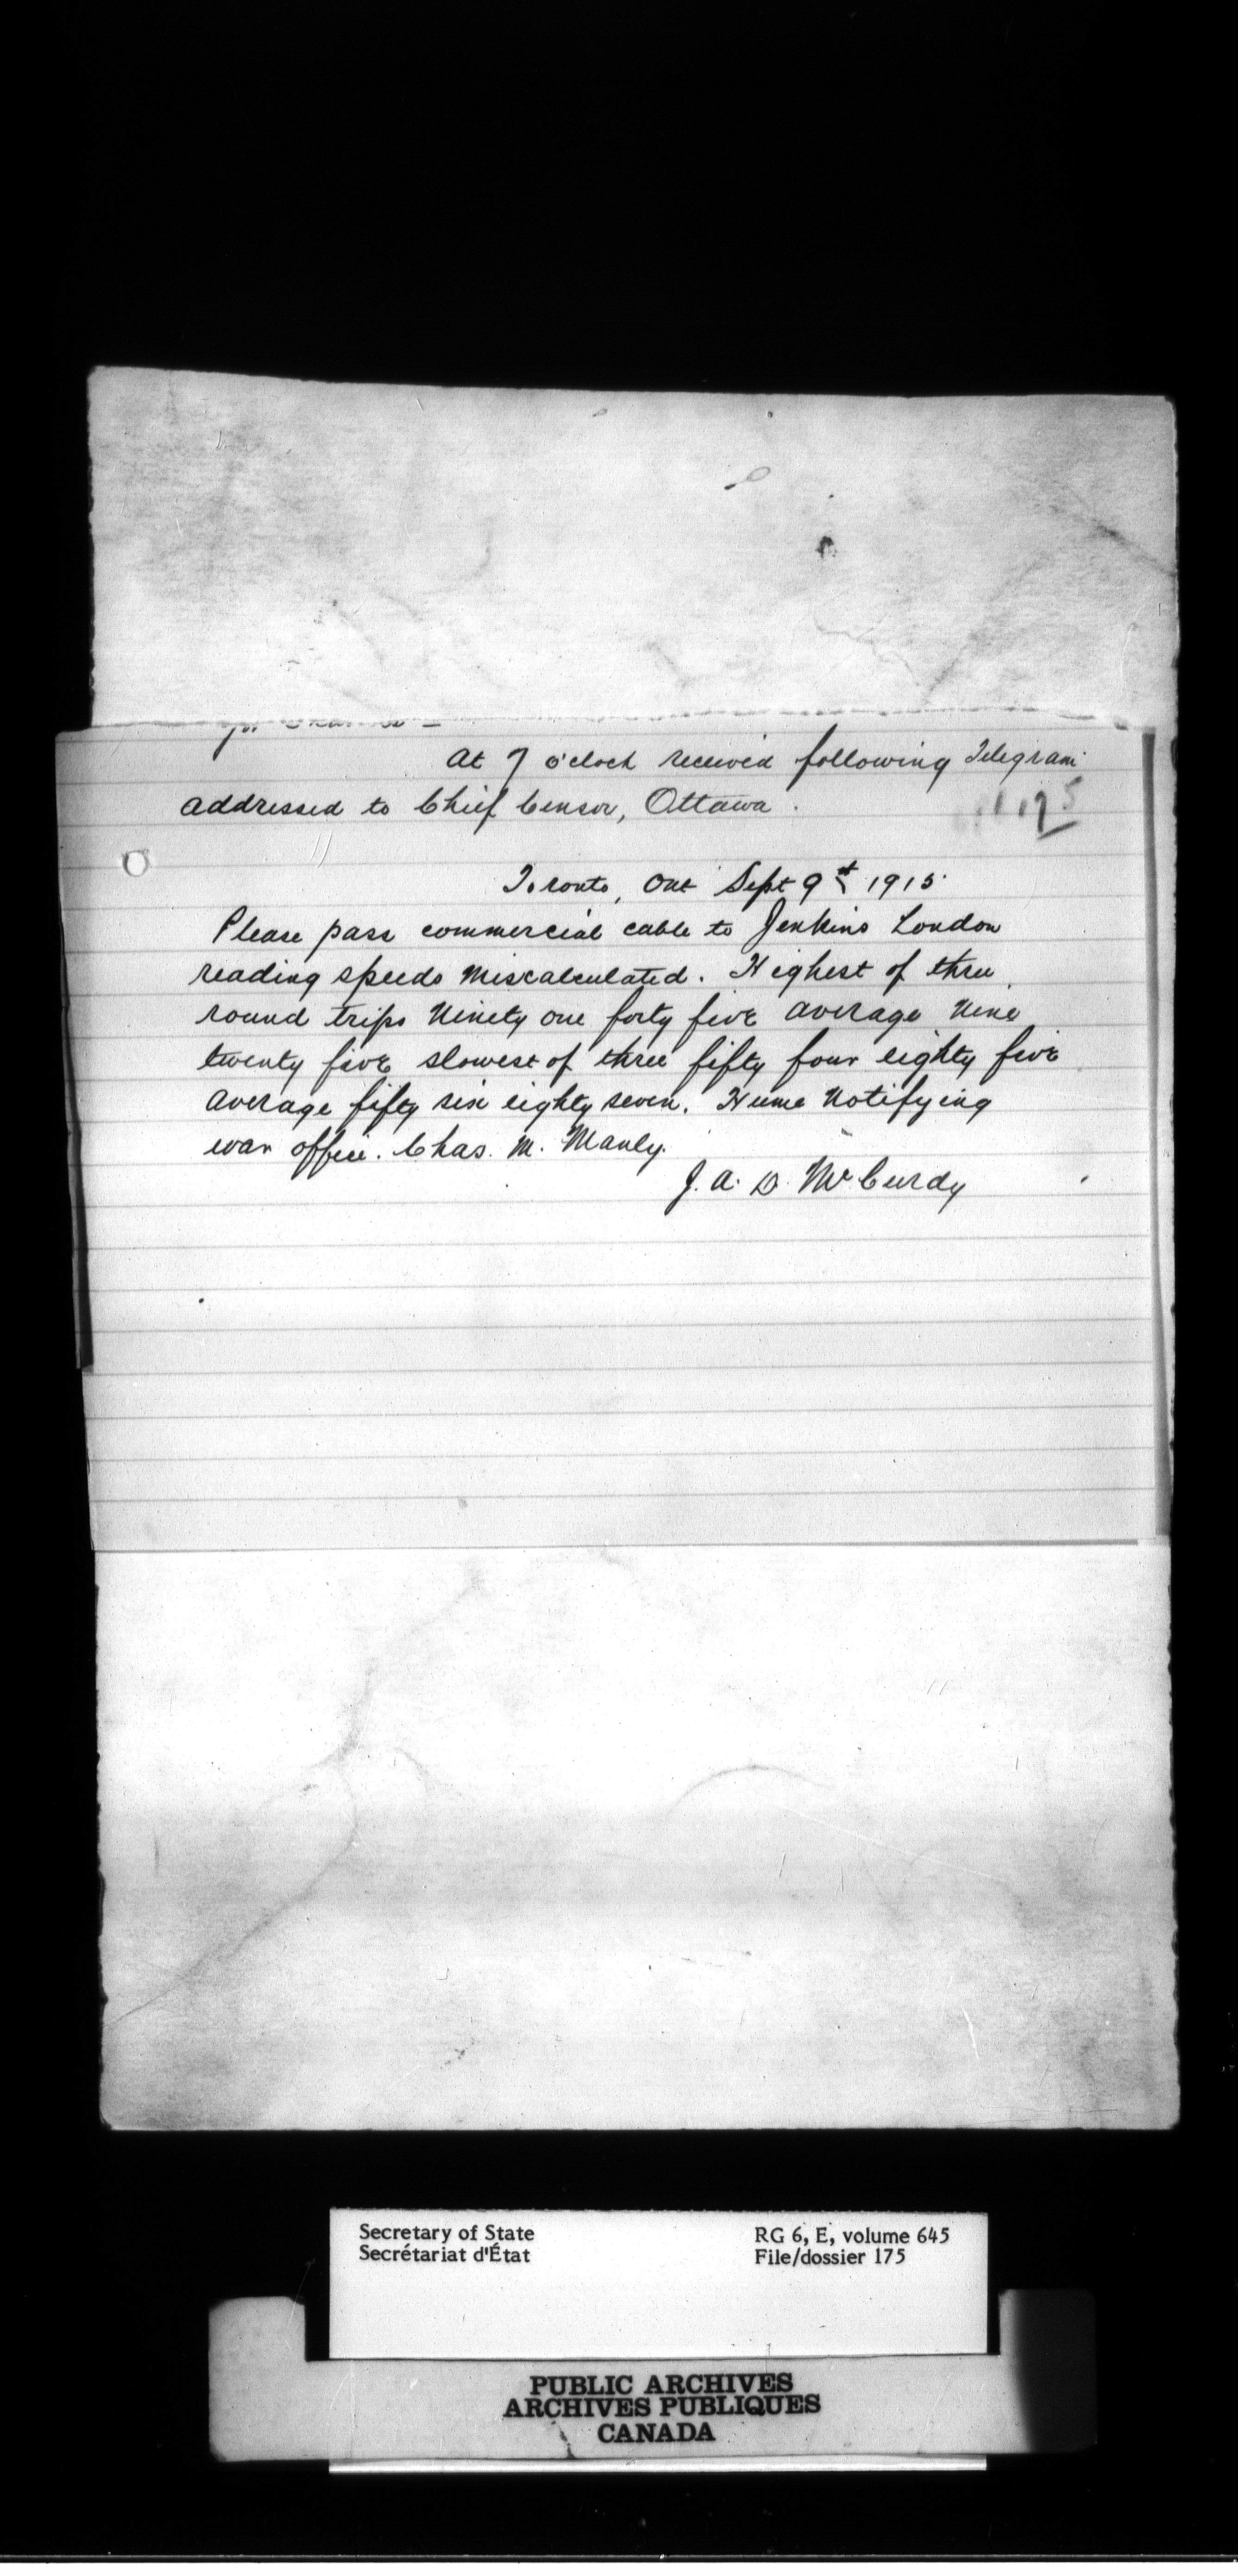 At 7 o'clock received following Telegram
addressed to Chief Censor, Ottawa.
175
Toronto, Ont Sept 9st 1915
Please pass commercial cable to Jenkins London
reading speeds miscalculated. Highest of three
round trips Ninety one forty five average Nine
twenty five slowest of three fifty four eighty five
average fifty six eighty seven. Hume Notifying
war office. Chas. M. Manly.
J. A. D. McCurdy
Secretary of State
Secrétariat d'État
RG 6, E, volume 645
File/dossier 175
PUBLIC ARCHIVES
ARCHIVES PUBLIQUES
CANADA